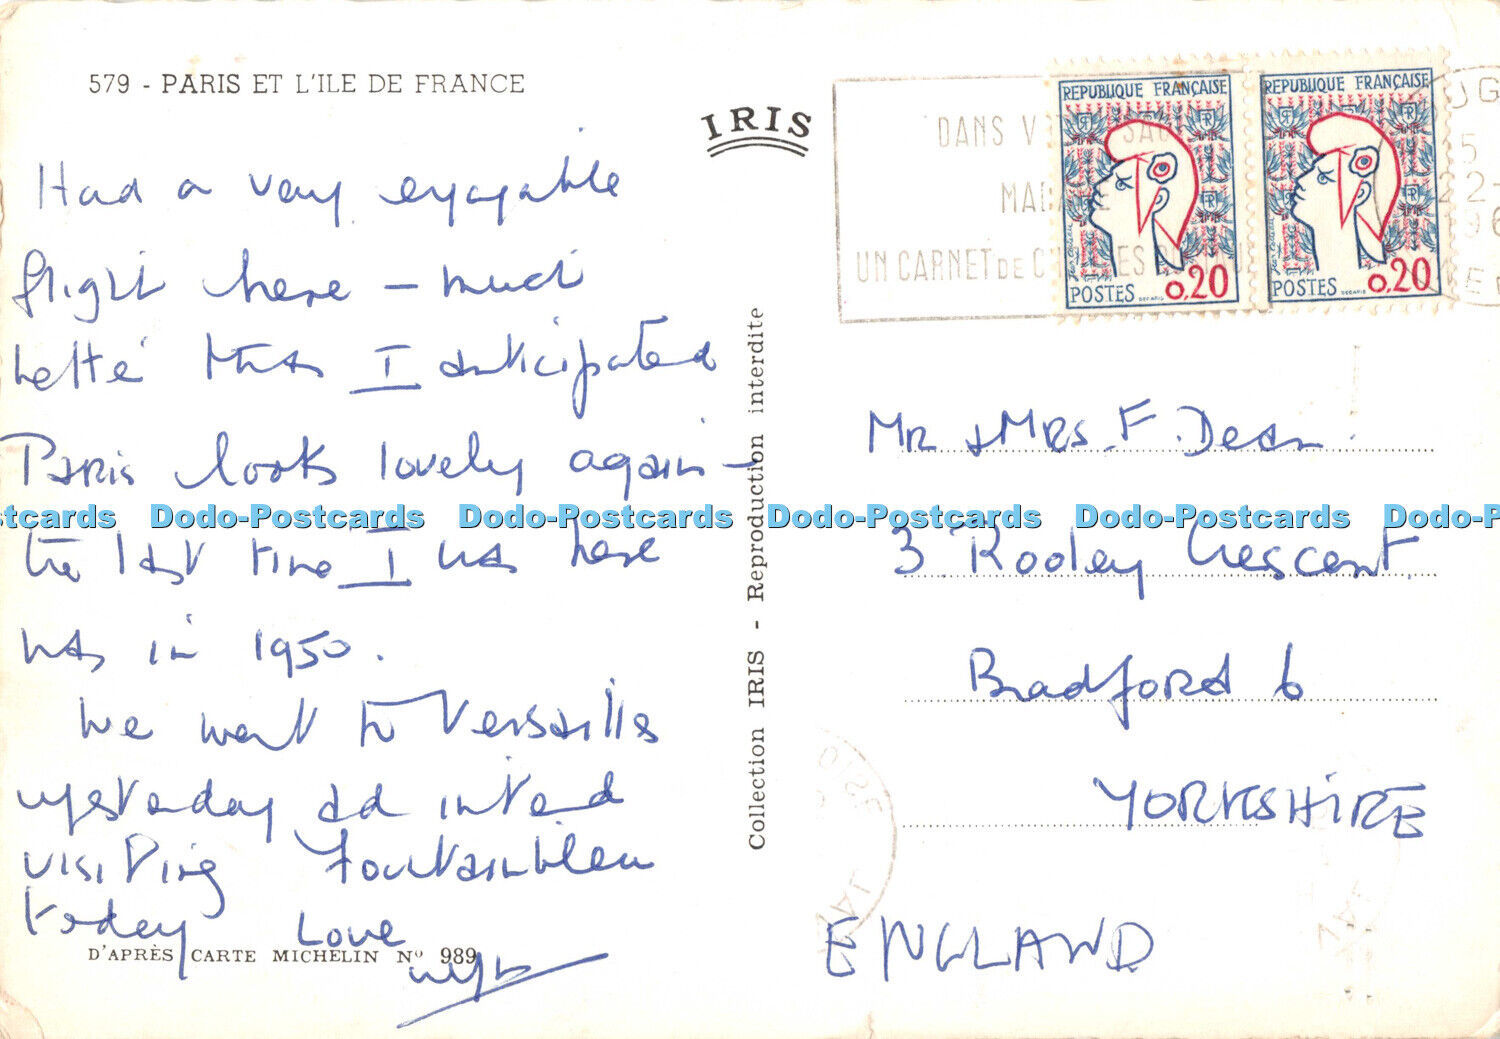 579 - PARIS ET L'ILE DE FRANCE
IRIS
Had a very enjoyable
flight here - much
better than I anticipated
Paris looks lovely again -
the last time I was here
was in 1950.
We went to Versailles
yesterday ad intend
visiting Fountainbleu
today Love
D'APRÈS CARTE MICHELIN Nº 989
Collection IRIS - Reproduction interdite
DANS V SAC
MADAME
UN CARNET DE CHÈQUES
REPUBLIQUE FRANÇAISE
POSTES
0,20
REPUBLIQUE FRANÇAISE
POSTES
0,20
Mr & Mrs. F. Dean.
3 Rooley Crescent
Bradford 6
YORKSHIRE
ENGLAND
stcards Dodo-Postcards Dodo-Postcards Dodo-Postcards Dodo-Postcards Dodo-P